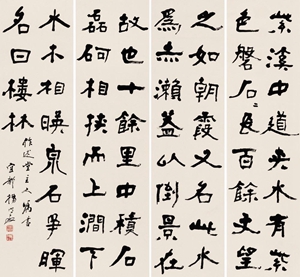 紫溪中道夾水有紫
色磐石〻長百餘丈望
之如朝霞又名此水
為赤瀨蓋以倒景在
故也十餘里中積石
磊砢相挾而上澗下
水木相暎泉石爭暉
名曰樓林
主人屬書
宜都楊守敬